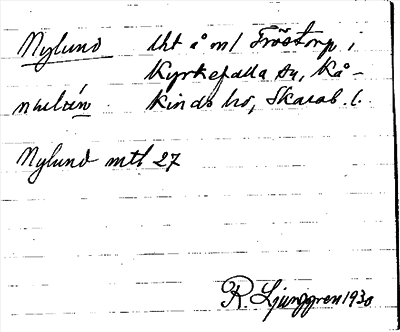 Nylund Lht å ml Fröstorp i
Kyrkefalla sn, Kå-
Kinds hd, Skarab. l.
Nylund mtl 27
R. Ljunggren 1930